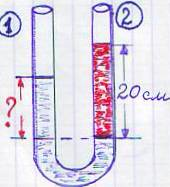 1
2
?
20 см